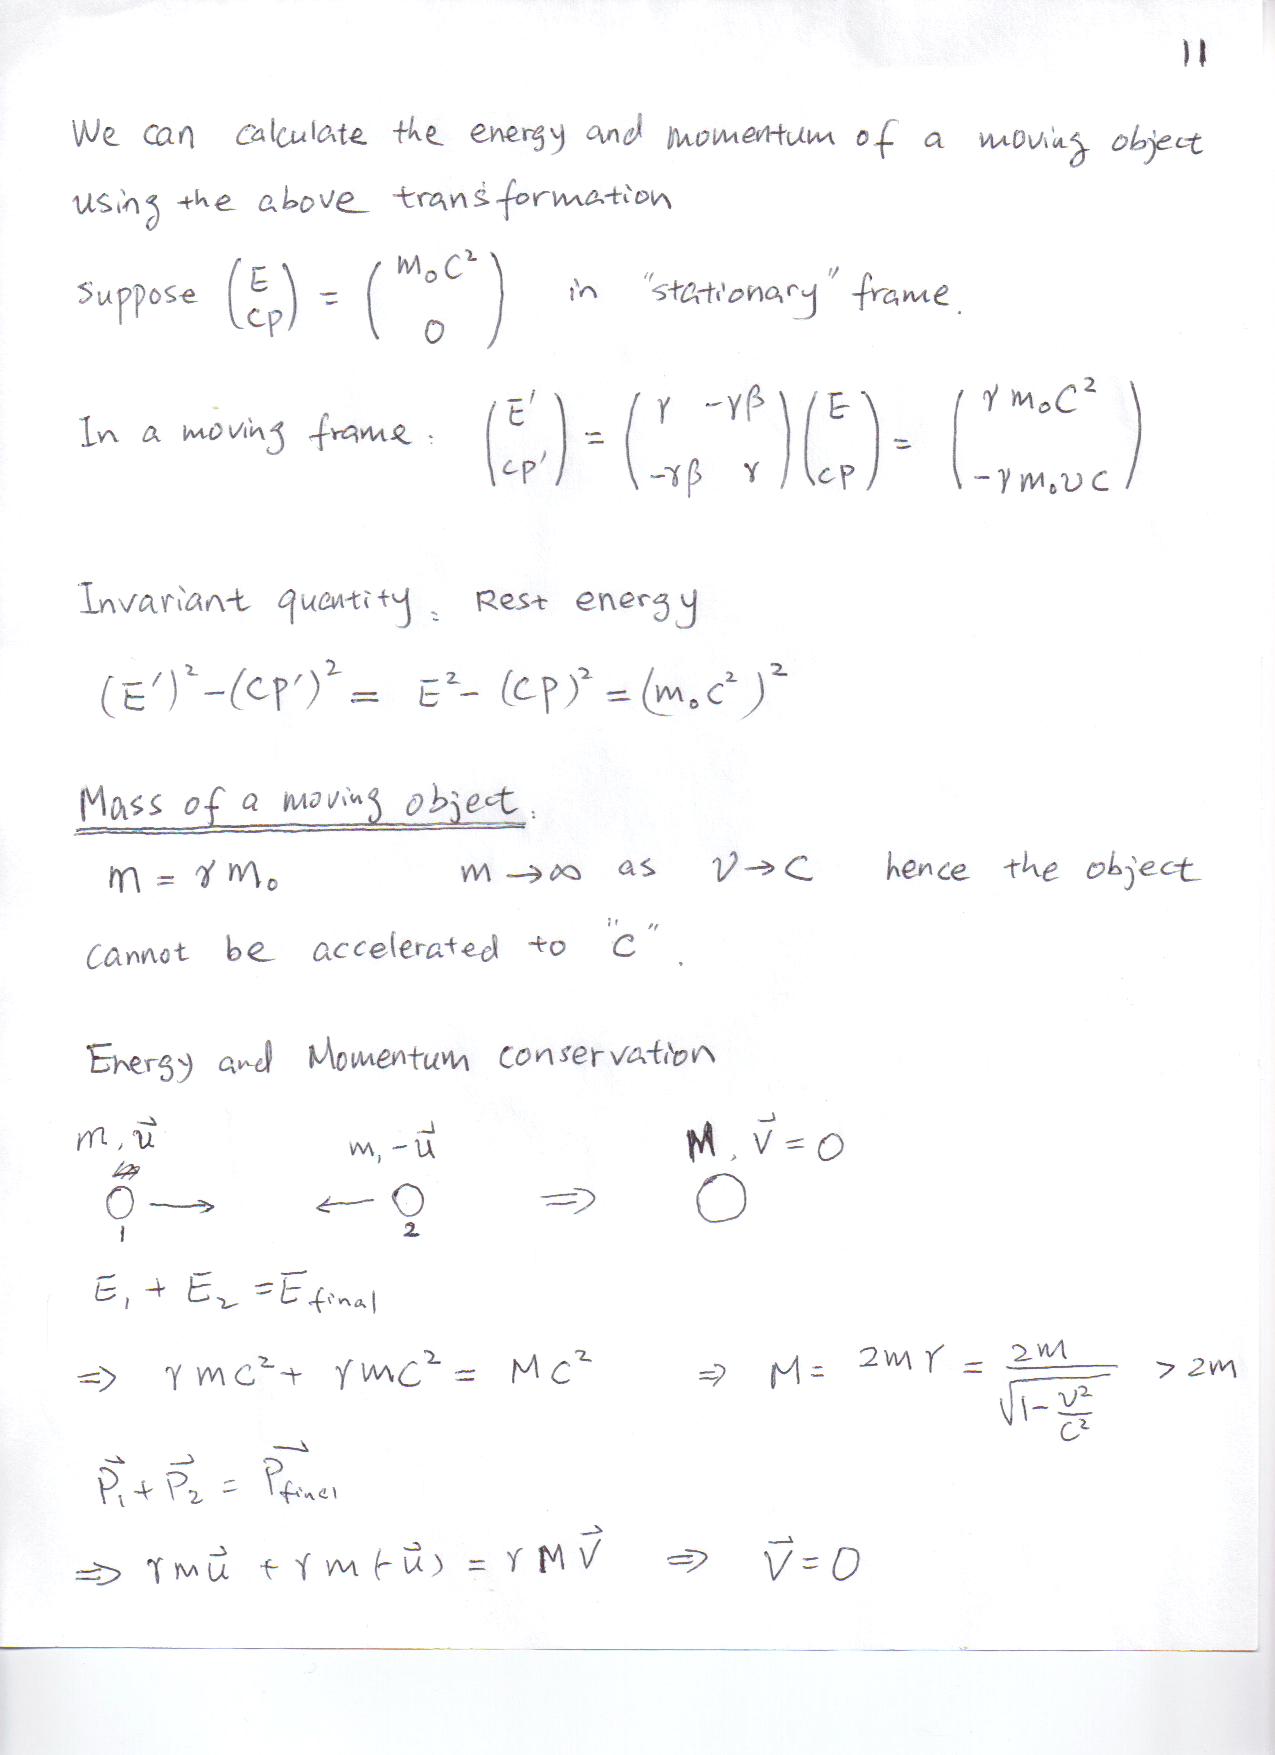 11
We can calculate the energy and momentum of a moving object
using the above transformation
Suppose (E cp) = (m₀c² 0) in "stationary" frame.
In a moving frame: (E' cp') = (γ -γβ -γβ γ)(E cp) = (γm₀c² -γm₀vc)
Invariant quantity: Rest energy
(E')² - (cp')² = E² - (cp)² = (m₀c²)²
Mass of a moving object.
m = γm₀ m → ∞ as v → c hence the object
cannot be accelerated to "c".
Energy and Momentum conservation
m, u⃗ m, -u⃗ M, V⃗ = 0
→ ← ⇒
1 2
E₁ + E₂ = E final
⇒ γmc² + γmc² = Mc² ⇒ M = 2mγ = 2m/√(1 - v²/c²) > 2m
P⃗₁ + P⃗₂ = P⃗final
⇒ γmu⃗ + γm(-u⃗) = γMV⃗ ⇒ V⃗ = 0